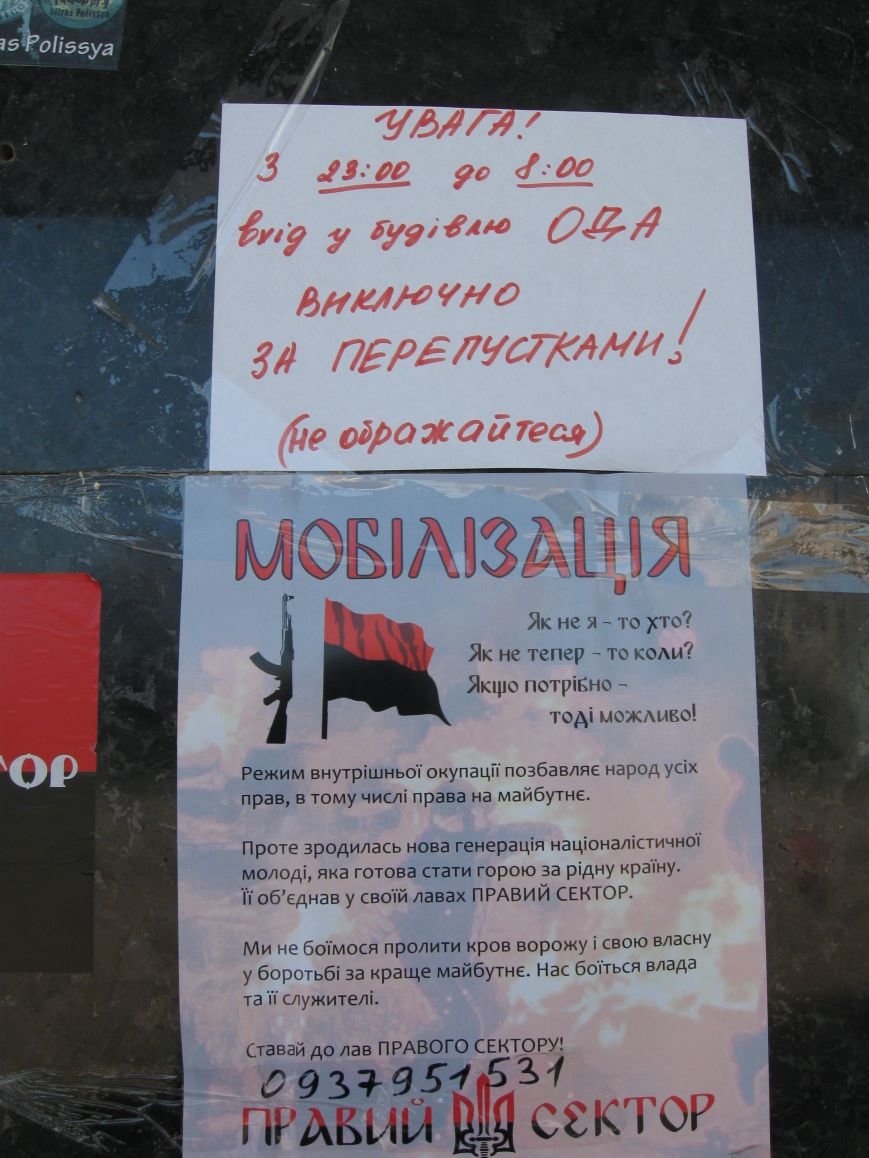 as Polissya
УВАГА!
З 23:00 до 8:00
вхід у будівлю ОДА
ВИКЛЮЧНО
ЗА ПЕРЕПУСТКАМИ!
(не ображайтеся)
МОБІЛІЗАЦІЯ
Як не я – то хто?
Як не тепер – то коли?
Якщо потрібно –
тоді можливо!
Режим внутрішньої окупації позбавляє народ усіх
прав, в тому числі права на майбутнє.
Проте зродилась нова генерація націоналістичної
молоді, яка готова стати горою за рідну країну.
Її об’єднав у своїй лавах ПРАВИЙ СЕКТОР.
Ми не боїмося пролити кров ворожу і свою власну
у боротьбі за краще майбутнє. Нас боїться влада
та її служителі.
Ставай до лав ПРАВОГО СЕКТОРУ!
0937951531
ПРАВИЙ СЕКТОР
ТОР